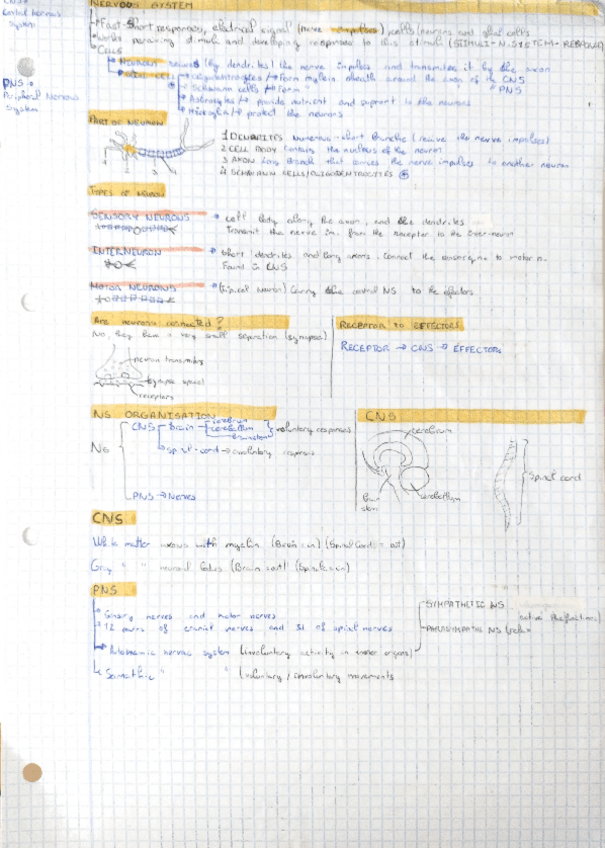 CNS →
Central Nervous
System
PNS →
Peripheral Nervous
System
NERVOUS SYSTEM
Fast-Short responses, electrical signal (nerve impulses) cells (neurons and glial cells
works receiving stimuli and developing responses to this stimuli (STIMULI - N.SYSTEM - RESPONSE)
CELLS
NEURONS receives (by dendrites) the nerve impulses and transmites it by the axon
GLIAL CELLS Oligodendrocytes → form myelin sheath around the axon of the CNS
Schwann cells → form " " PNS
Astrocytes → provide nutrient and suport to the neurons
Microglia → protect the neurons
PART OF NEURON
1 DENDRITES Numerous-short branche (recive the nerve impulses)
2 CELL BODY Contains the nucleus of the neuron
3 AXON Long Branch that carries the nerve impulses to another neuron
4 SCHWANN CELLS/OLIGODENTROCITES
TYPES OF NEURON
SENSORY NEURONS
cell body along the axon, and the dendrites
transmit the nerve im. from the receptor to the inter-neuron
INTERNEURON
Short dendrites and long axons. Connect the sensory n. to motor n.
Found in CNS
MOTOR NEURONS
(tipical neuron) Carry the control NS to the effectors
Are neurons connected?
No, they have a very small separation (synapse)
neuron transmiters
synapse space
receptors
RECEPTOR TO EFFECTORS
RECEPTOR → CNS → EFFECTORS
NS ORGANISATION
NS
CNS Brain cerebrum
cerebellum
brainstem
voluntary responses
Spinal-cord → involuntary responses
PNS → Nerves
CNS
cerebrum
Brain
stem
cerebellum
Spinal cord
CNS
White matter axons with myelin (Brain: in) (Spinal Cord: out)
Grey " " neuronal bodies (Brain: out) (Spinal: in)
PNS
Sensory nerves and motor nerves
12 pairs of cranial nerves and 31 of spinal nerves
Autonomic nervous system (involuntary activity in inner organs)
SYMPATHETIC NS
PARASYMPATHE. NS (relax
active the functions)
Somathic " " (voluntary / involuntary movements